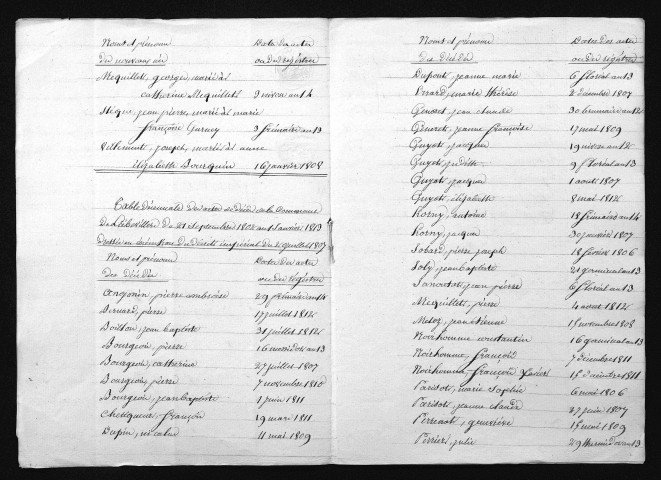 Noms et prénoms Date des actes
des nouveaux nés ou des registres
Mequillet, george, marié à
catherine Mequillet 9 nivose an 14
pierre, marié à marie
françoise 3 frimaire an 13
Villemont, joseph, marié à anne
élizabeth Bourquin 16 janvier 1808
Table Décennale des actes de Décès de la Commune
de du 21 septembre 1802 au 1 janvier 1813
Dressée en exécution du Décret impérial du 20 juillet 1807
Noms et prénoms Date des actes
des Décédés ou des registres
angonin, pierre ambroise 29 frimaire an 14
Bernard, pierre 17 juillet 1812
Boillon, jean baptiste 31 juillet 1812
Bourgeois, pierre 16 messidor an 13
Bourgeois, catherine 27 juillet 1807
Bourgeois, pierre 7 novembre 1810
Bourgeois, jean baptiste 1 juin 1811
françois 19 mars 1811
Dupin, nicolas 11 mai 1809
Noms et prénoms Date des actes
des Décédés ou des registres
Dupont, jeanne marie 6 floréal an 13
marie thérèse 2 décembre 1807
Genoret, jean claude 30 brumaire an 12
Genoret, jeanne françoise 17 mai 1809
Guyot, jacques 19 nivose an 12
Guyot, judith 9 floréal an 13
Guyot, jacques 1 aout 1807
Guyot, élizabeth 8 mai 1812
Korny, antoine 18 frimaire an 14
Korny, jacques 30 janvier 1807
Jobard, pierre joseph 18 février 1806
Joly, jean baptiste 21 germinal an 13
jean pierre 6 floréal an 13
Mequillet, pierre 4 aout 1812
Metoz, jean étienne 15 novembre 1808
Noirhomme, constantin 16 germinal an 13
Noirhomme, françois 7 décembre 1811
Noirhomme, françois Xavier 18 décembre 1811
Parisot, marie Sophie 6 mai 1806
Parisot, jeanne claude 27 juin 1807
Perrenot, geneviève 15 mai 1809
Perrier, julie 29 thermidor an 13